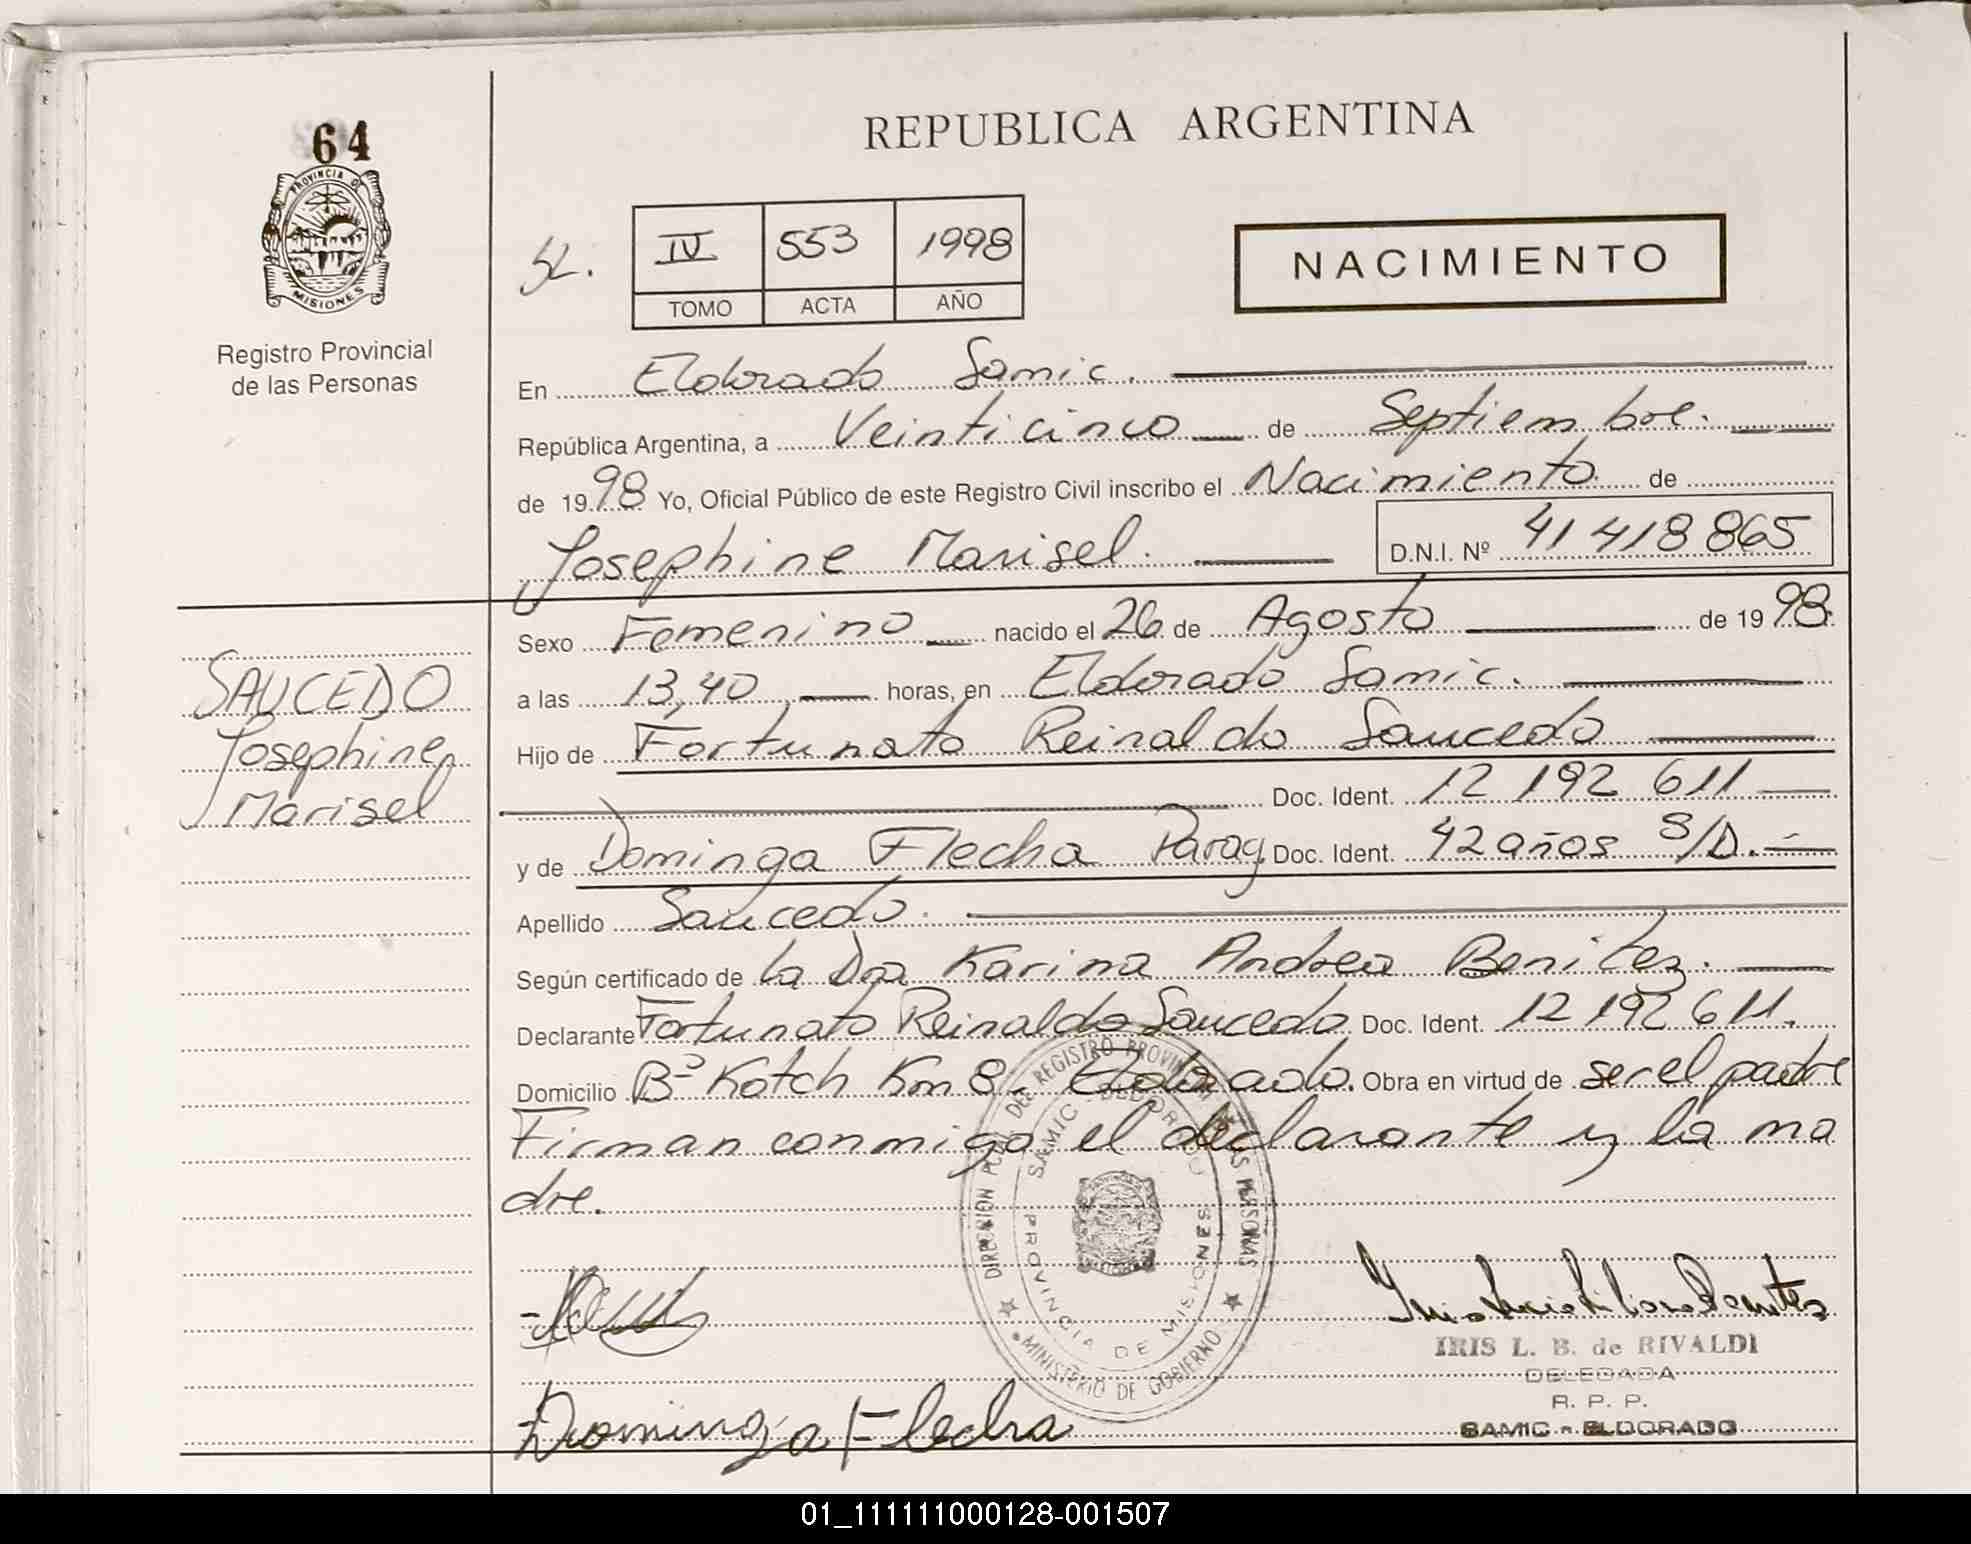 64
PROVINCIA DE
MISIONES
Registro Provincial
de las Personas
REPUBLICA ARGENTINA
IV 553 1998
TOMO ACTA AÑO
NACIMIENTO
En Eldorado Samic.
República Argentina, a Veinticinco de Septiembre.
de 1998 Yo, Oficial Público de este Registro Civil inscribo el Nacimiento de
Josephine Marisel. D.N.I. Nº 41 418 865
Sexo Femenino nacido el 26 de Agosto de 1998.
a las 13,40 horas, en Eldorado Samic.
Hijo de Fortunato Reinaldo Saucedo
Doc. Ident. 12 192 611
y de Dominga Flecha Parag Doc. Ident. 42 años S/D.
Apellido Saucedo.
Según certificado de la Dra Karina Andrea Benitez.
Declarante Fortunato Reinaldo Saucedo Doc. Ident. 12 192 611.
Domicilio Bº Kotch Km 8. Eldorado. Obra en virtud de ser el padre
Firman conmigo el declarante y la ma
dre.
SAUCEDO
Josephine
Marisel
DIRECCION PCIAL DEL REGISTRO PROVINCIAL DE LAS PERSONAS
SAMIC ELDORADO
PROVINCIA DE MISIONES
MINISTERIO DE GOBIERNO
Dominga Flecha
IRIS L. B. de RIVALDI
DELEGADA
R. P. P.
SAMIC - ELDORADO
01_111111000128-001507